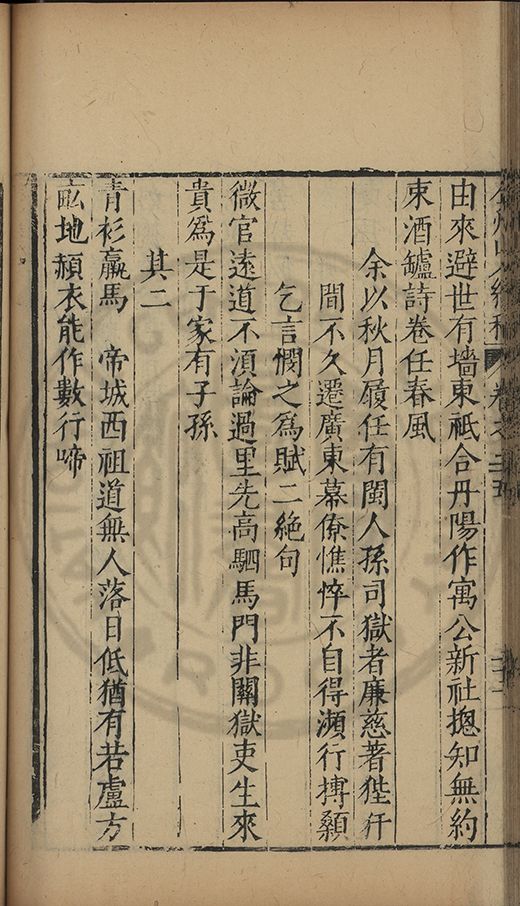 由來避世有墻東祗合丹陽作寓公新社摠知無約
束酒罏詩卷任春風
余以秋月履任有閩人孫司獄者廉慈著狴犴
間不久遷廣東幕僚憔悴不自得瀕行搏顙
乞言憫之爲賦二絶句
微官遠道不湏論過里先高駟馬門非關獄吏生來
貴爲是于家有子孫
其二
青衫羸馬　帝城西祖道無人落日低猶有若盧方
畝地赬衣能作數行啼